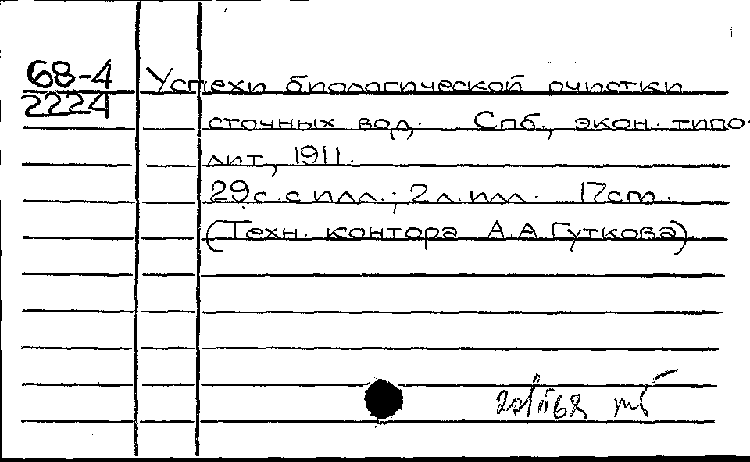 68-4 Успехи биологической очистки
2224
сточных вод. Спб., экон. типо-
лит, 1911.
29 с. с илл.; 2 л. илл. 17 см.
(Техн. контора А.А. Гуткова)